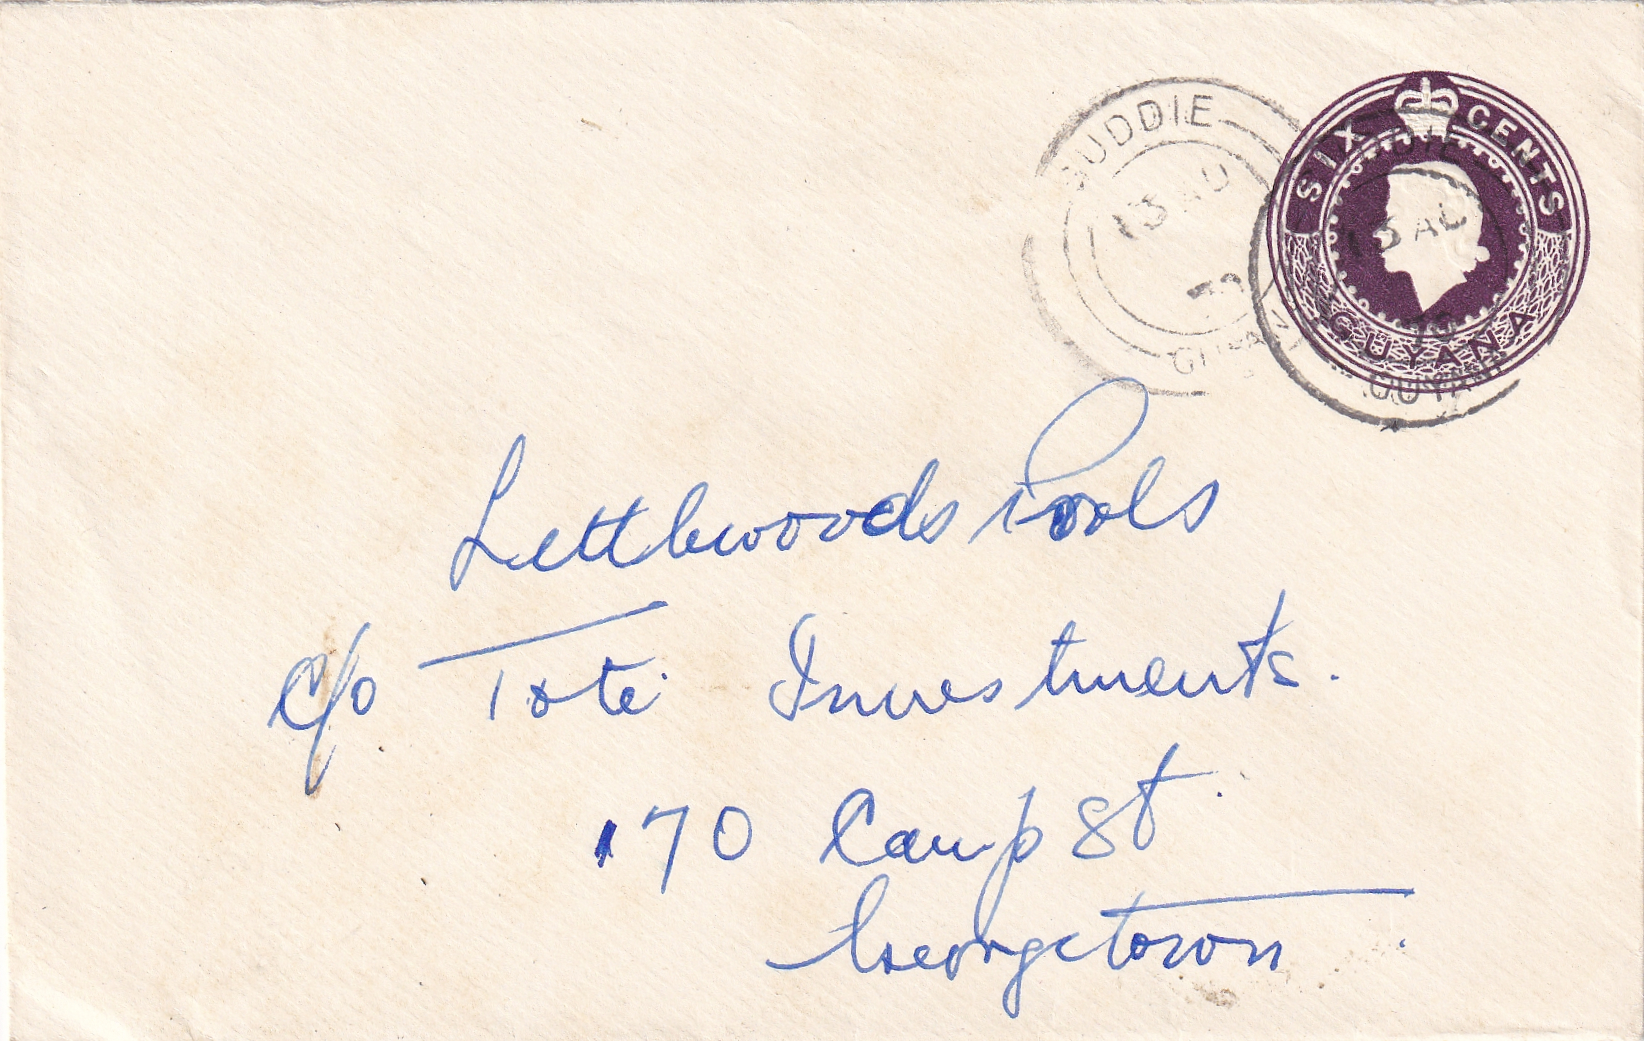 SUDDIE
13 AU
70
GUYANA
SIX CENTS
GUYANA
DDIE
13 AU
70
GUYANA
Littlewoods Pools
c/o Tote Investments.
170 Camp St.
Georgetown.